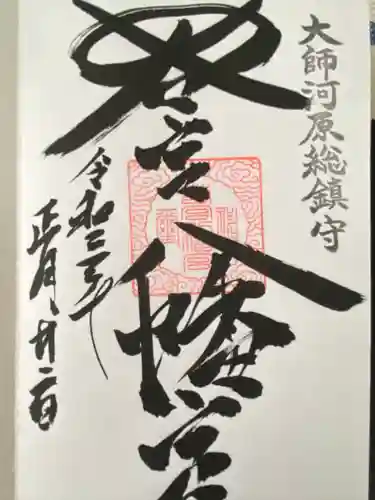 大師河原総鎮守
若宮八幡宮
令和三年
正月、廿二日